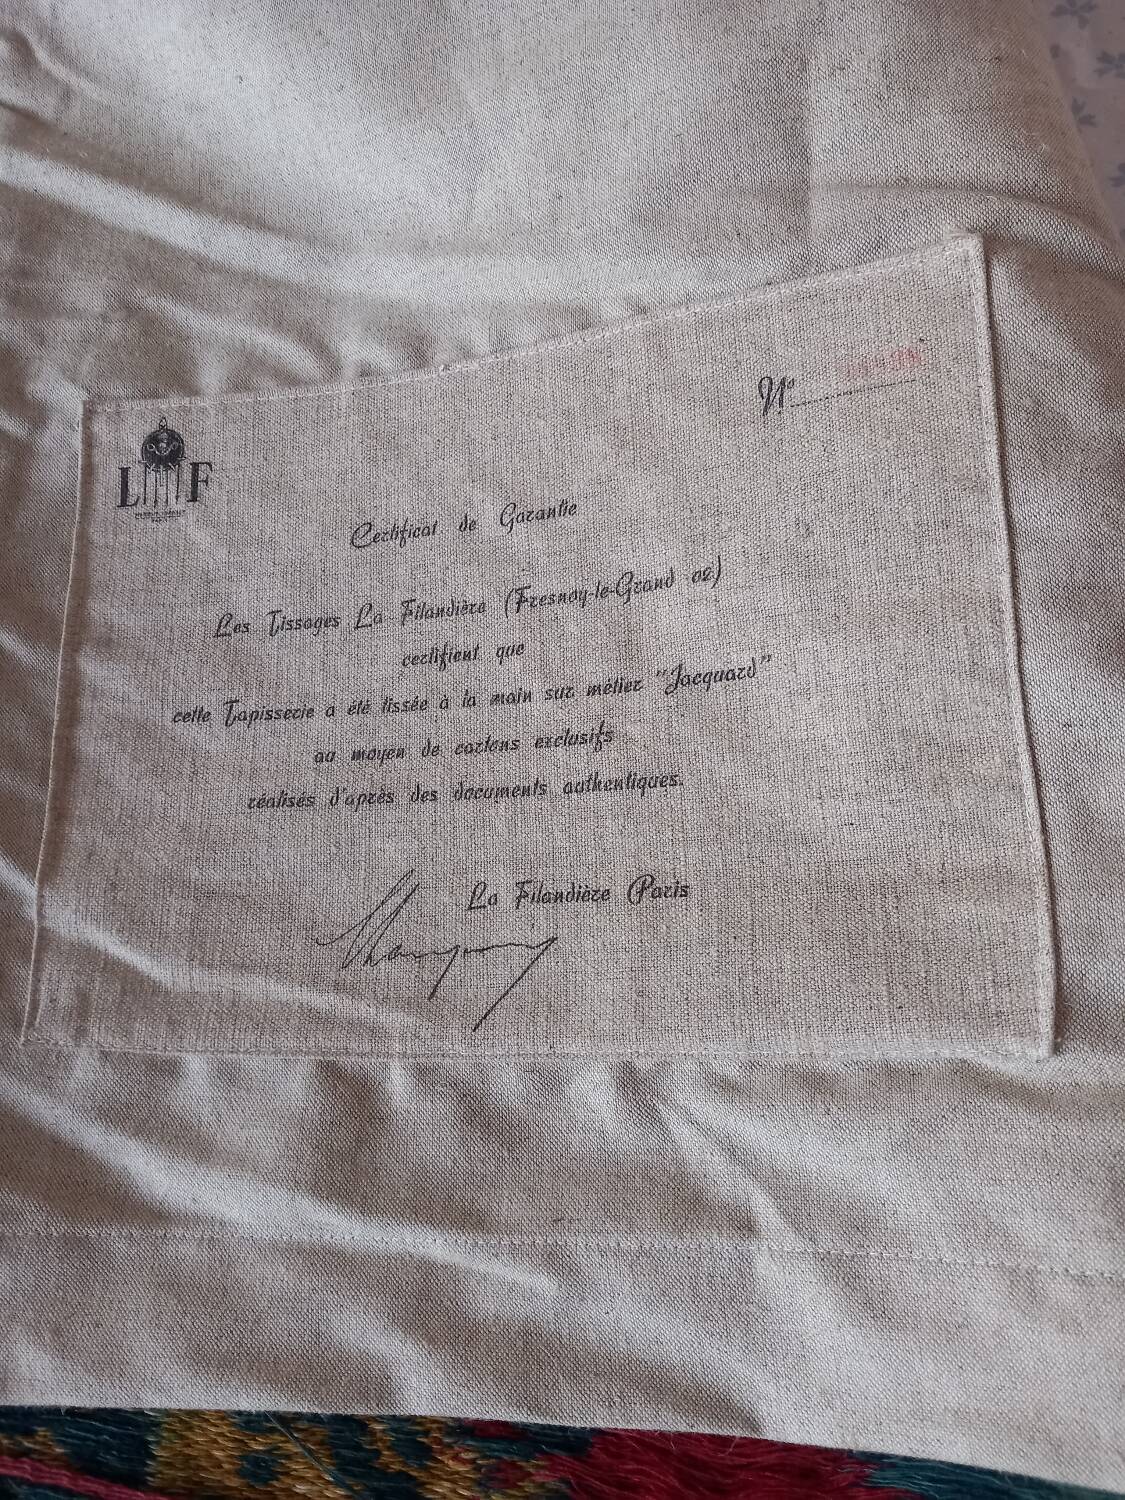 L F
Nº
Certificat de Garantie
Les Tissages La Filandière (Fresnoy-le-Grand 02)
certifient que
cette Tapisserie a été tissée à la main sur métier "Jacquard"
au moyen de cartons exclusifs
réalisés d'après des documents authentiques.
La Filandière Paris